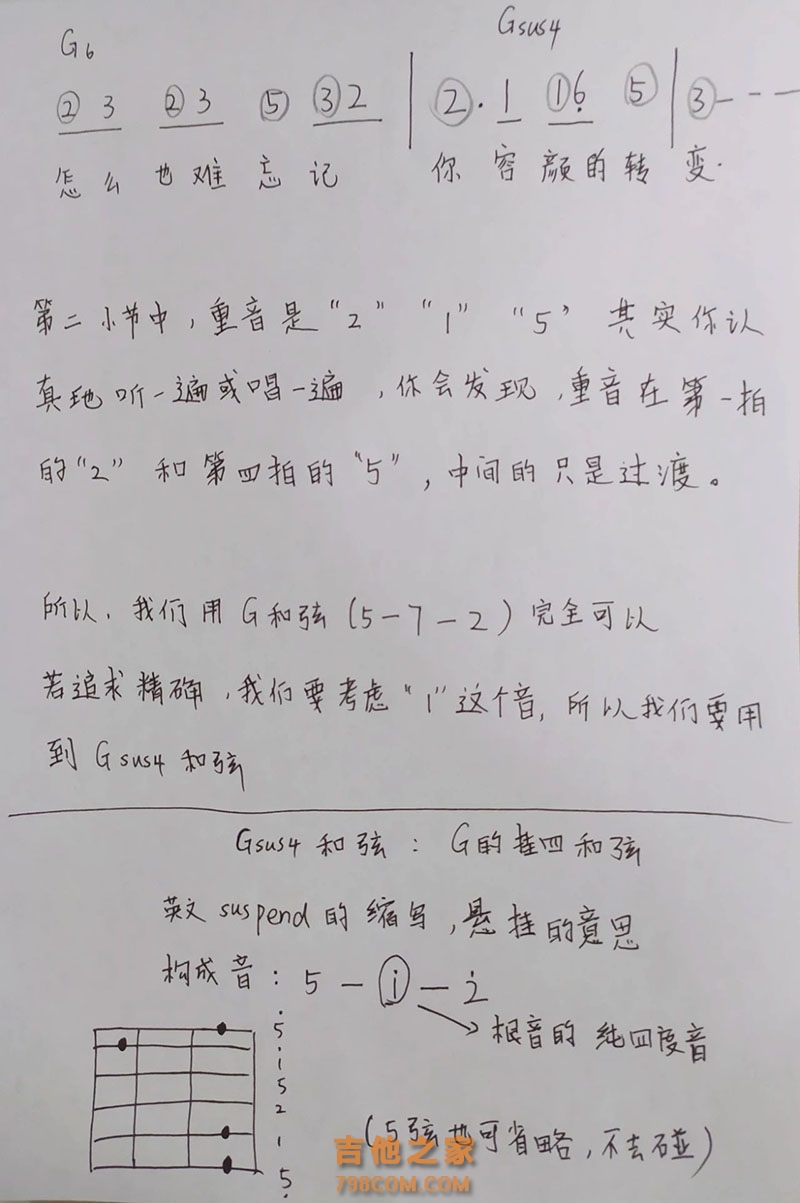 G6 Gsus4
② 3 ② 3 ⑤ ③ 2 | ②· 1 ① 6̣ ⑤ | ③ - - -
怎么也难忘记 你容颜的转变.
第二小节中，重音是“2”“1”“5” 其实你认
真地听一遍或唱一遍，你会发现，重音在第一拍
的“2”和第四拍的“5”，中间的只是过渡。
所以，我们用G和弦(5-7-2)完全可以
若追求精确，我们要考虑“1”这个音，所以我们要用
到Gsus4和弦
Gsus4和弦：G的挂四和弦
英文suspend的缩写，悬挂的意思
构成音：5-i-2̇
根音的纯四度音
5̇
1̇
5
2
1
5̣
(5弦也可省略，不去碰)
吉他之家
798COM.COM